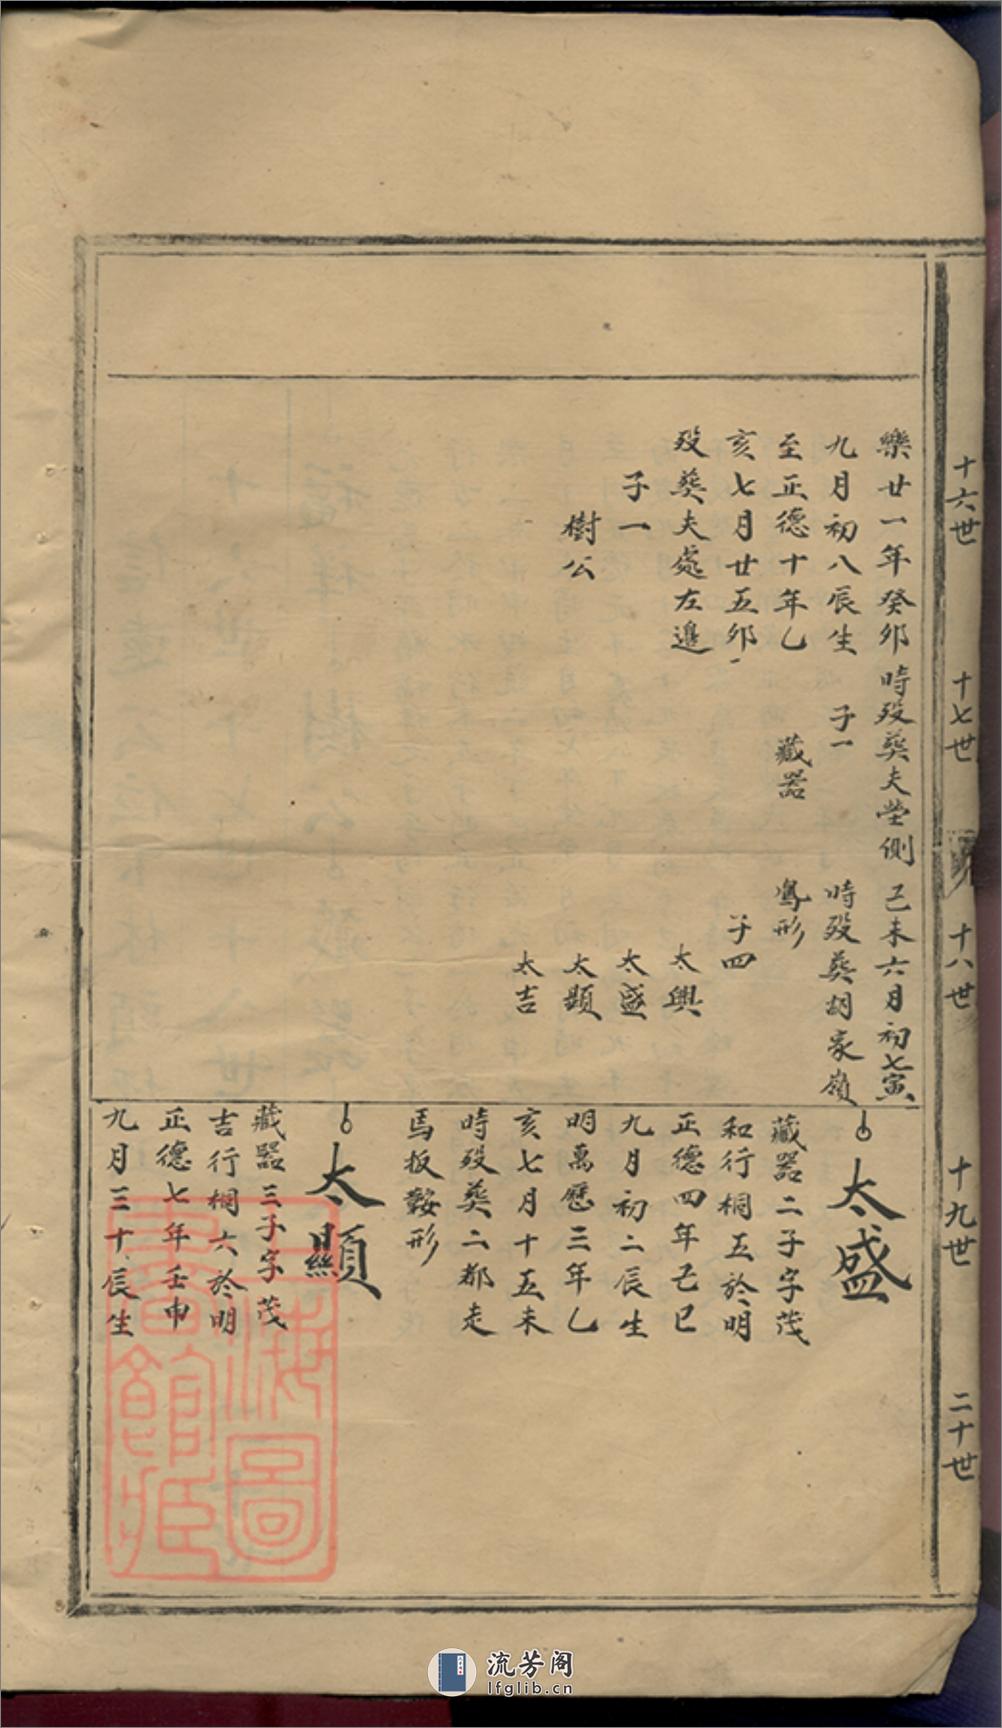 十六世
十七世
十八世
十九世
二十世
樂廿一年癸卯
九月初八辰生
至正德十年乙
亥七月廿五卯
歿葬夫處左邉
子一
樹公
時歿葬夫塋側
子一
藏器
己未六月初七寅
時歿葬胡家嶺
鳬形
子四
太興
太盛
太顕
太吉
太盛
藏器二子字茂
和行桐五於明
正德四年己巳
九月初二辰生
明萬歷三年乙
亥七月十五未
時歿葬二都走
馬扳鞍形
太顯
藏器三子字茂
吉行桐六於明
正德七年壬申
九月三十辰生
上海圖
書館藏
流芳阁
lfglib.cn